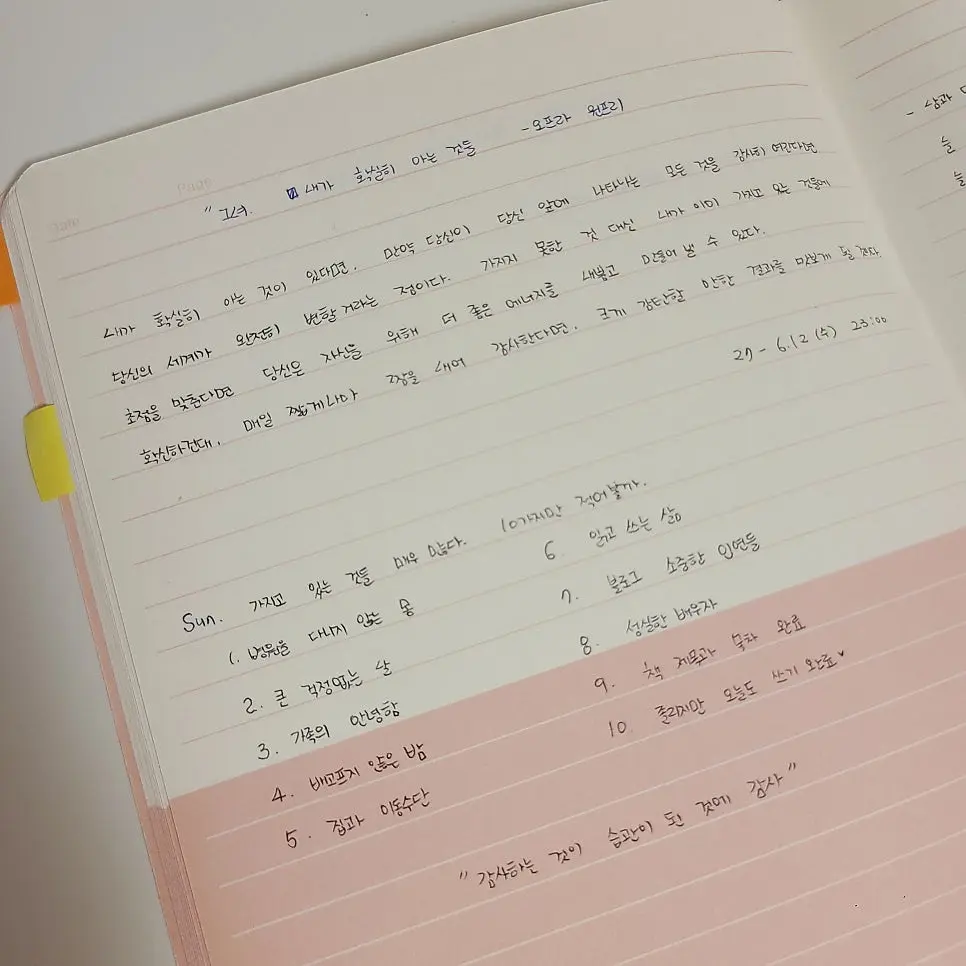 Page
"그녀. 내가 확실히 아는 것들 - 오프라 윈프리
내가 확실히 아는 것이 있다면, 만약 당신이 당신 앞에 나타나는 모든 것을 감사히 여긴다면
당신의 세계가 완전히 변할거라는 점이다. 가지지 못한 것 대신 내가 이미 가지고 있는 것들에
초점을 맞춘다면 당신은 자신을 위해 더 좋은 에너지를 내뿜고 만들어 낼 수 있다.
확신하건대, 매일 짧게나마 짬을 내어 감사한다면, 크게 감탄할 만한 결과를 맛보게 될 거다.
27 - 6.12 (수) 23:00
Sun. 가지고 있는 것들 매우 많다. 10가지만 적어볼까.
1. 병원을 다니지 않는 몸
2. 큰 걱정없는 날
3. 가족의 안녕함
4. 배고프지 않은 밤
5. 집과 이동수단
6. 읽고 쓰는 삶
7. 블로그 소중한 인연들
8. 성실한 배우자
9. 책 제목과 목차 완료
10. 졸리지만 오늘도 쓰기 완료
"감사하는 것이 습관이 된 것에 감사"
늘
늘